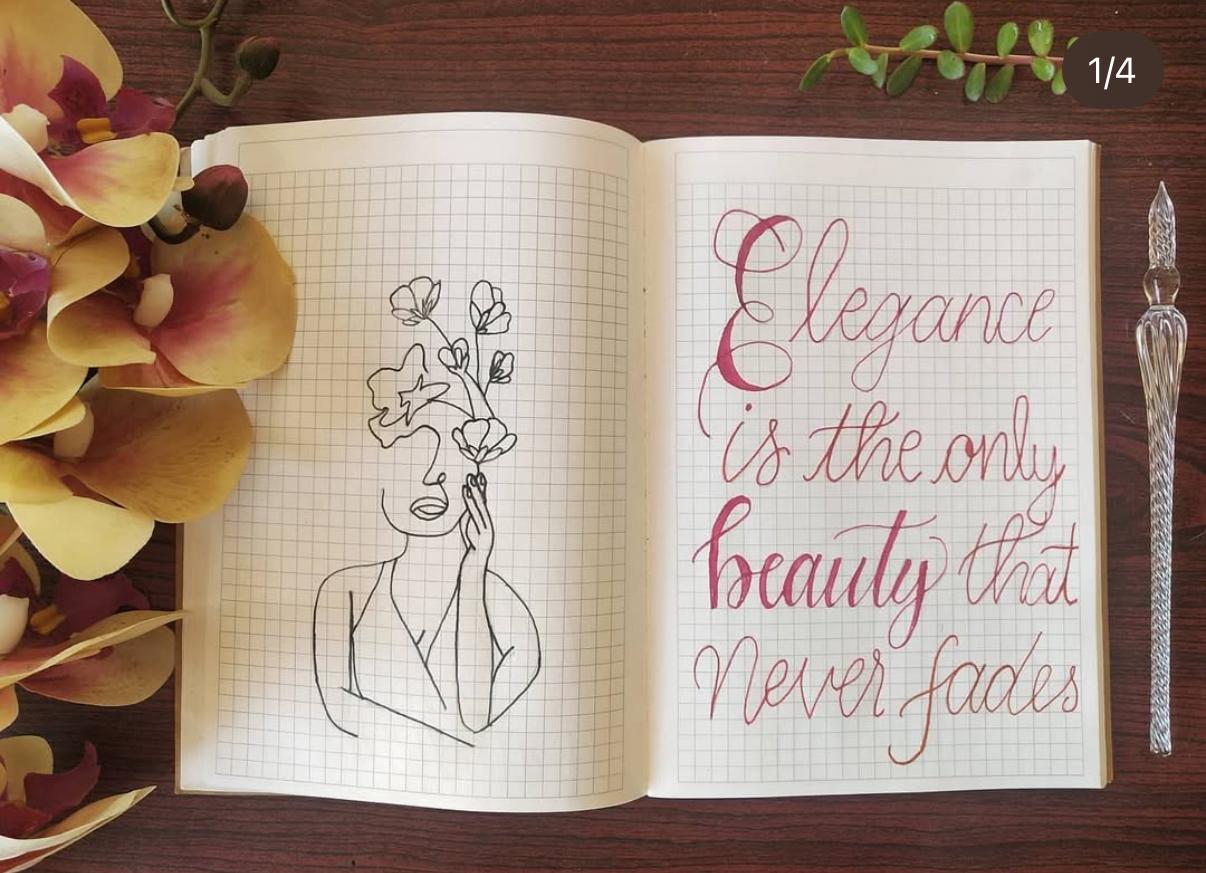 1/4
Elegance
is the only
beauty that
Never fades